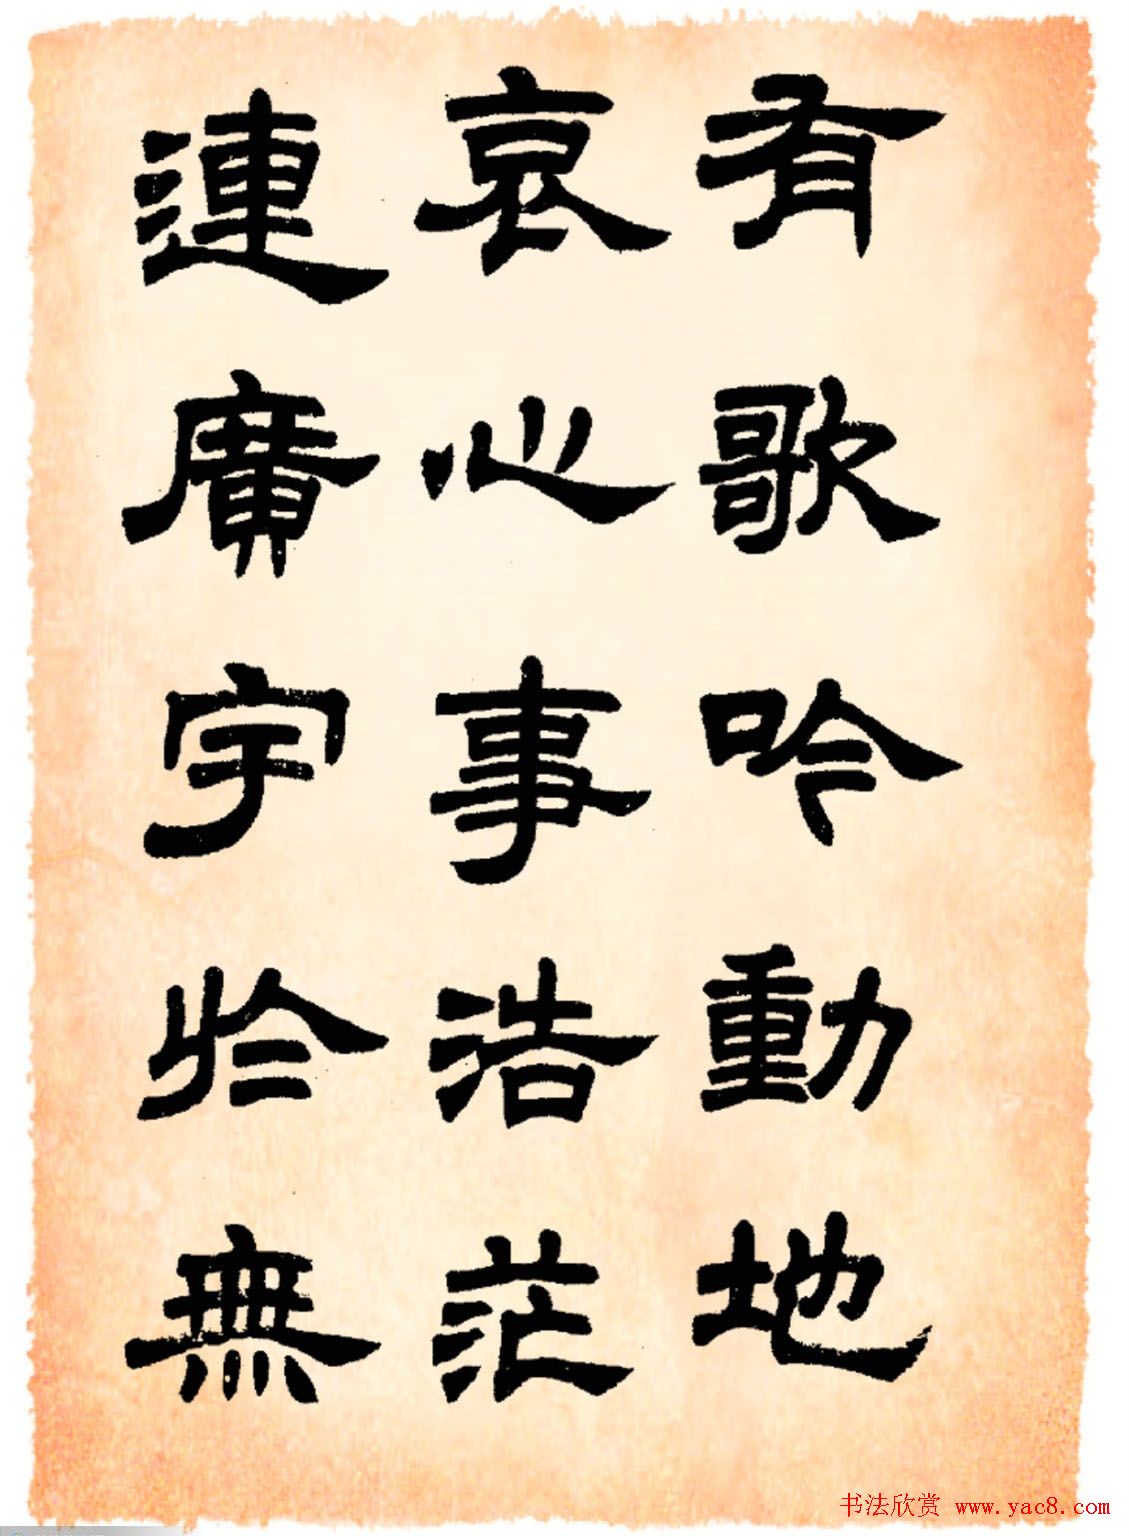 有歌吟動地
哀心事浩茫
連廣宇於無
书法欣赏 www.yac8.com